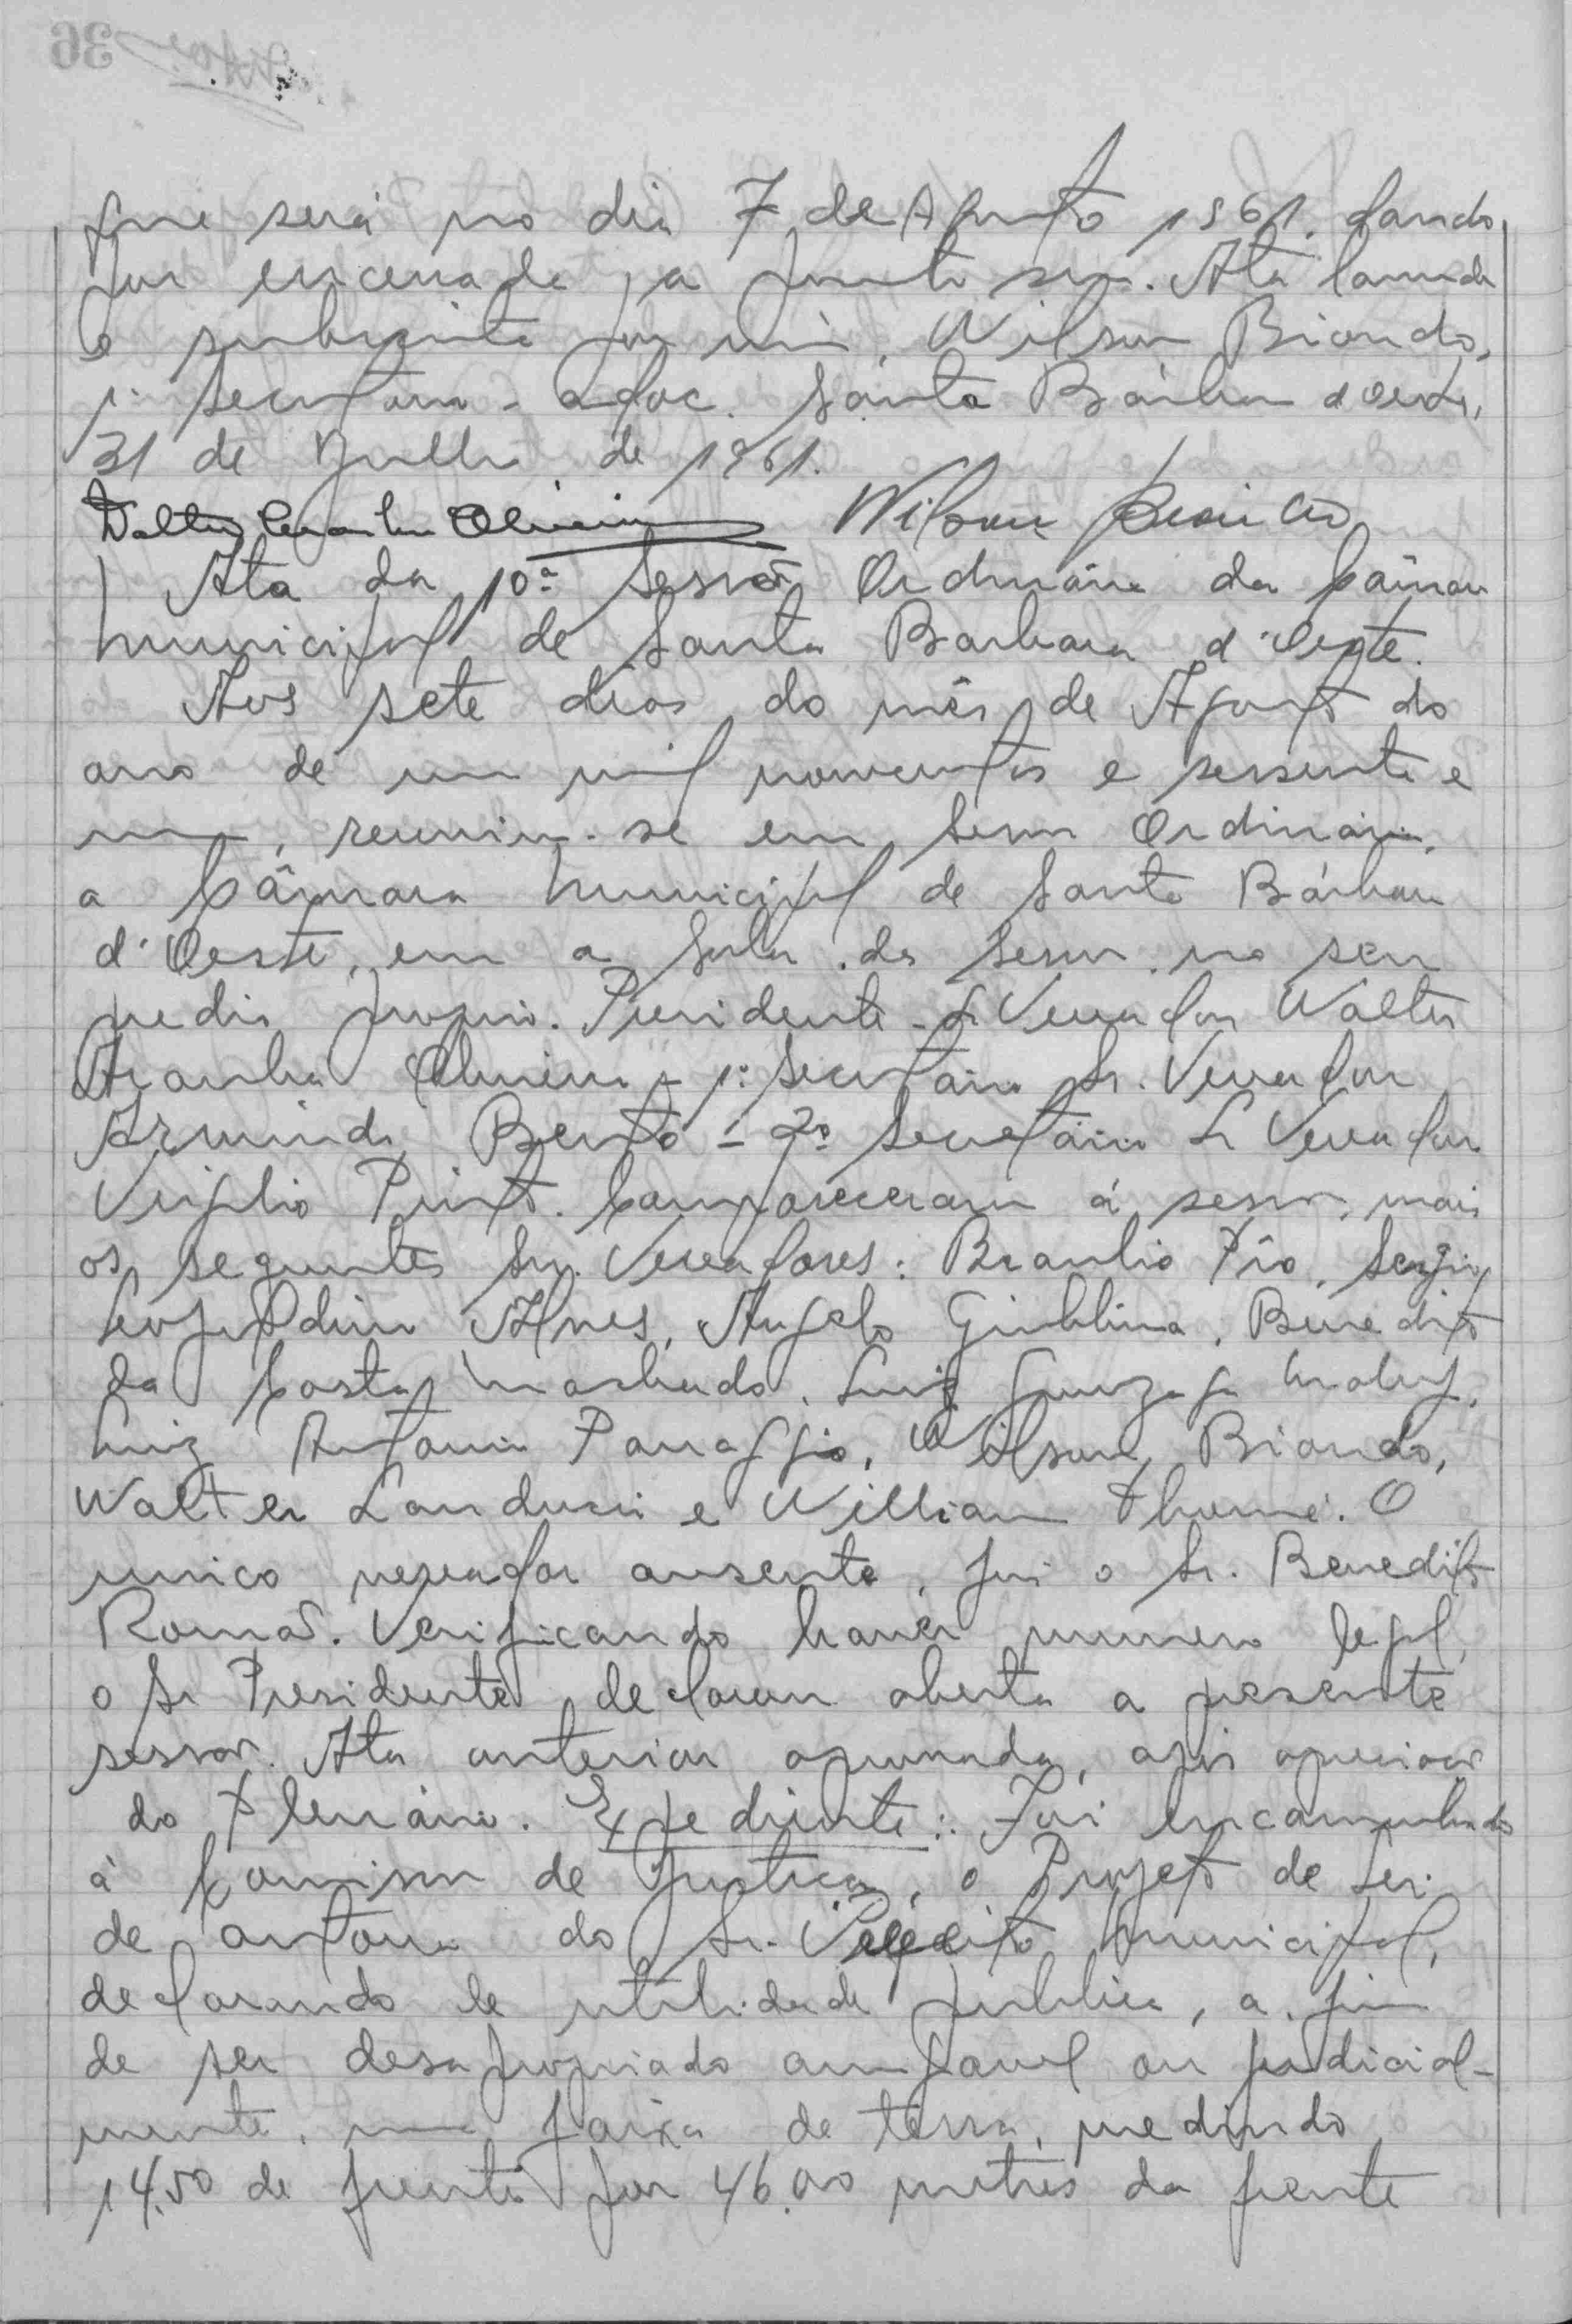 que será no dia 7 de Agosto 1961, dando
por encerrada a presente sessão. Ata lavrada
e subscrita por mim, Wilson Biondo,
1º Secretario - adoc. Santa Bárbara d'Oeste,
31 de Julho de 1961.
Walter Aranha Oliveira Wilson
Ata da 10ª Sessão Ordinária da Câmara
Municipal de Santa Barbara d'Oeste.
Aos sete dias do mês de Agosto do
ano de um mil novecentos e sessenta e
um, reuniu-se em Sessão Ordinária,
a Câmara Municipal de Santa Bárbara
d'Oeste, em a Sala de Sessão no seu
predio proprio. Presidente - Sr Vereador Walter
Aranha Oliveira - 1º Secretário Sr. Vereador
Armindo Bento - 2º Secretário Sr Vereador
Virgilio Pinto. Compareceram á sessão, mais
os seguintes Srs. Vereadores: Braulio Pio, Sergio
Leopoldino Alves, Angelo Giubbina, Benedito
da Costa Machado, Luiz Gonzaga
Luiz Antonio Panaggio, Wilson Biondo,
Walter Landucci e William Thomé. O
unico vereador ausente, foi o Sr. Benedito
Romão. Verificando haver numero legal,
o Sr Presidente declarou aberta a presente
sessão. Ata anterior aprovada, após apreciação
do Plenário. Expediente: Foi encaminhado
à Comissão de Justiça, o Projeto de Lei
de autoria do Sr. Prefeito Municipal,
declarando de utilidade pública, a fim
de ser desapropriado amigavel ou judicial-
mente, uma faixa de terra, medindo
14,50 de frente por 46,00 metros da frente